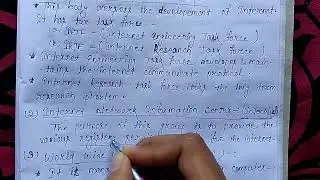 * This body oversees the developement of Internet
It has two task force -
(Internet Engineering Task Force)
IRTF - (Internet Research Task Force)
* Internet Engineering Task Force developer & main-
tains the Internet communicate protocol -
* Internet Research task force looks the long term
research problem -
(2) Internet Network Information Center - (InterNIC)
The purpose of this group is to provide the
various registery for the internet
(3) World Wide :-
* It is computer-